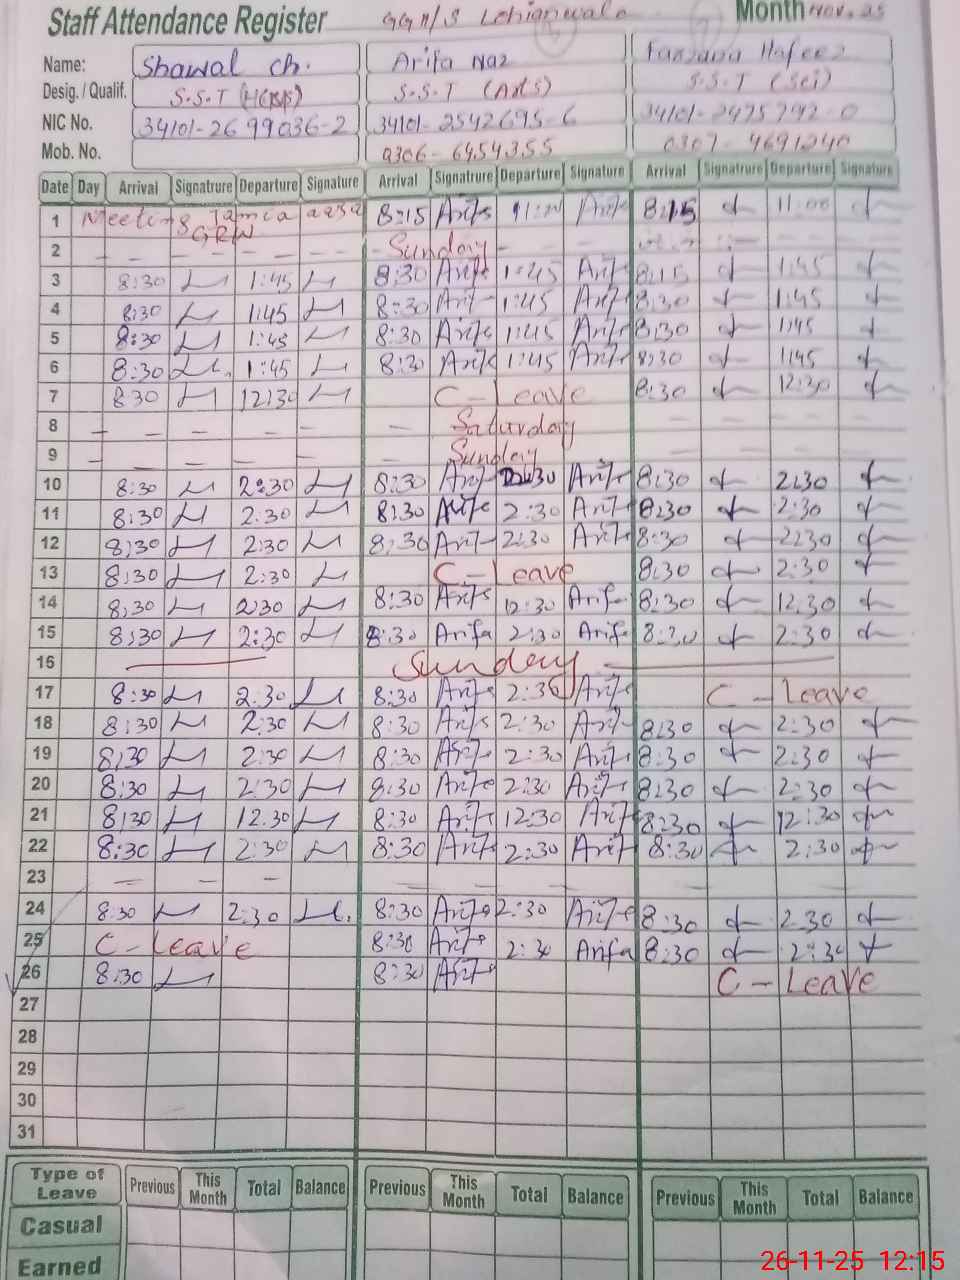 Staff Attendance Register GGH/S Month Nov. 25
Name: Shawal Ch. Arifa Naz Farzana Hafeez
Desig. / Qualif. S.S.T S.S.T (Arts) S.S.T (Sci)
NIC No. 34101-2699036-2 34101-2542695-6 34101-2475792-0
Mob. No. 0306-6454355 0307-4691240
Date Day Arrival Signatrure Departure Signature Arrival Signatrure Departure Signature Arrival Signatrure Departure Signature
1 Meeting Jamia GRW 8:15 Arifa Arifa 8:15 11:00
2 - - - - - - Sunday - - -
3 8:30 1:45 8:30 Arifa 1:45 Arifa 8:15 1:45
4 8:30 1:45 8:30 Arifa 1:45 Arifa 8:30 1:45
5 8:30 1:45 8:30 Arifa 1:45 Arifa 8:30 1:45
6 8:30 1:45 8:30 Arifa 1:45 Arifa 8:30 1:45
7 8:30 12:30 C-Leave 8:30 12:30
8 - - - - - - Saturday - - - -
9 - - - - - - Sunday - - - -
10 8:30 2:30 8:30 Arifa 2:30 Arifa 8:30 2:30
11 8:30 2:30 8:30 Arifa 2:30 Arifa 8:30 2:30
12 8:30 2:30 8:30 Arifa 2:30 Arifa 8:30 2:30
13 8:30 2:30 C-Leave 8:30 2:30
14 8:30 2:30 8:30 Arifa 12:30 Arifa 8:30 12:30
15 8:30 2:30 8:30 Arifa 2:30 Arifa 8:30 2:30
16 Sunday
17 8:30 2:30 8:30 Arifa 2:30 Arifa C-Leave
18 8:30 2:30 8:30 Arifa 2:30 Arifa 8:30 2:30
19 8:30 2:30 8:30 Arifa 2:30 Arifa 8:30 2:30
20 8:30 2:30 8:30 Arifa 2:30 Arifa 8:30 2:30
21 8:30 12:30 8:30 Arifa 12:30 Arifa 8:30 12:30
22 8:30 2:30 8:30 Arifa 2:30 Arifa 8:30 2:30
23 - - - - - - - - -
24 8:30 2:30 8:30 Arifa 2:30 Arifa 8:30 2:30
25 C-Leave 8:30 Arifa 2:30 Arifa 8:30 2:30
26 8:30 8:30 Arifa C-Leave
27
28
29
30
31
Type of Leave Previous This Month Total Balance Previous This Month Total Balance Previous This Month Total Balance
Casual
Earned
26-11-25 12:15